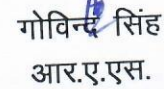 गोविन्द सिंह
आर.ए.एस.